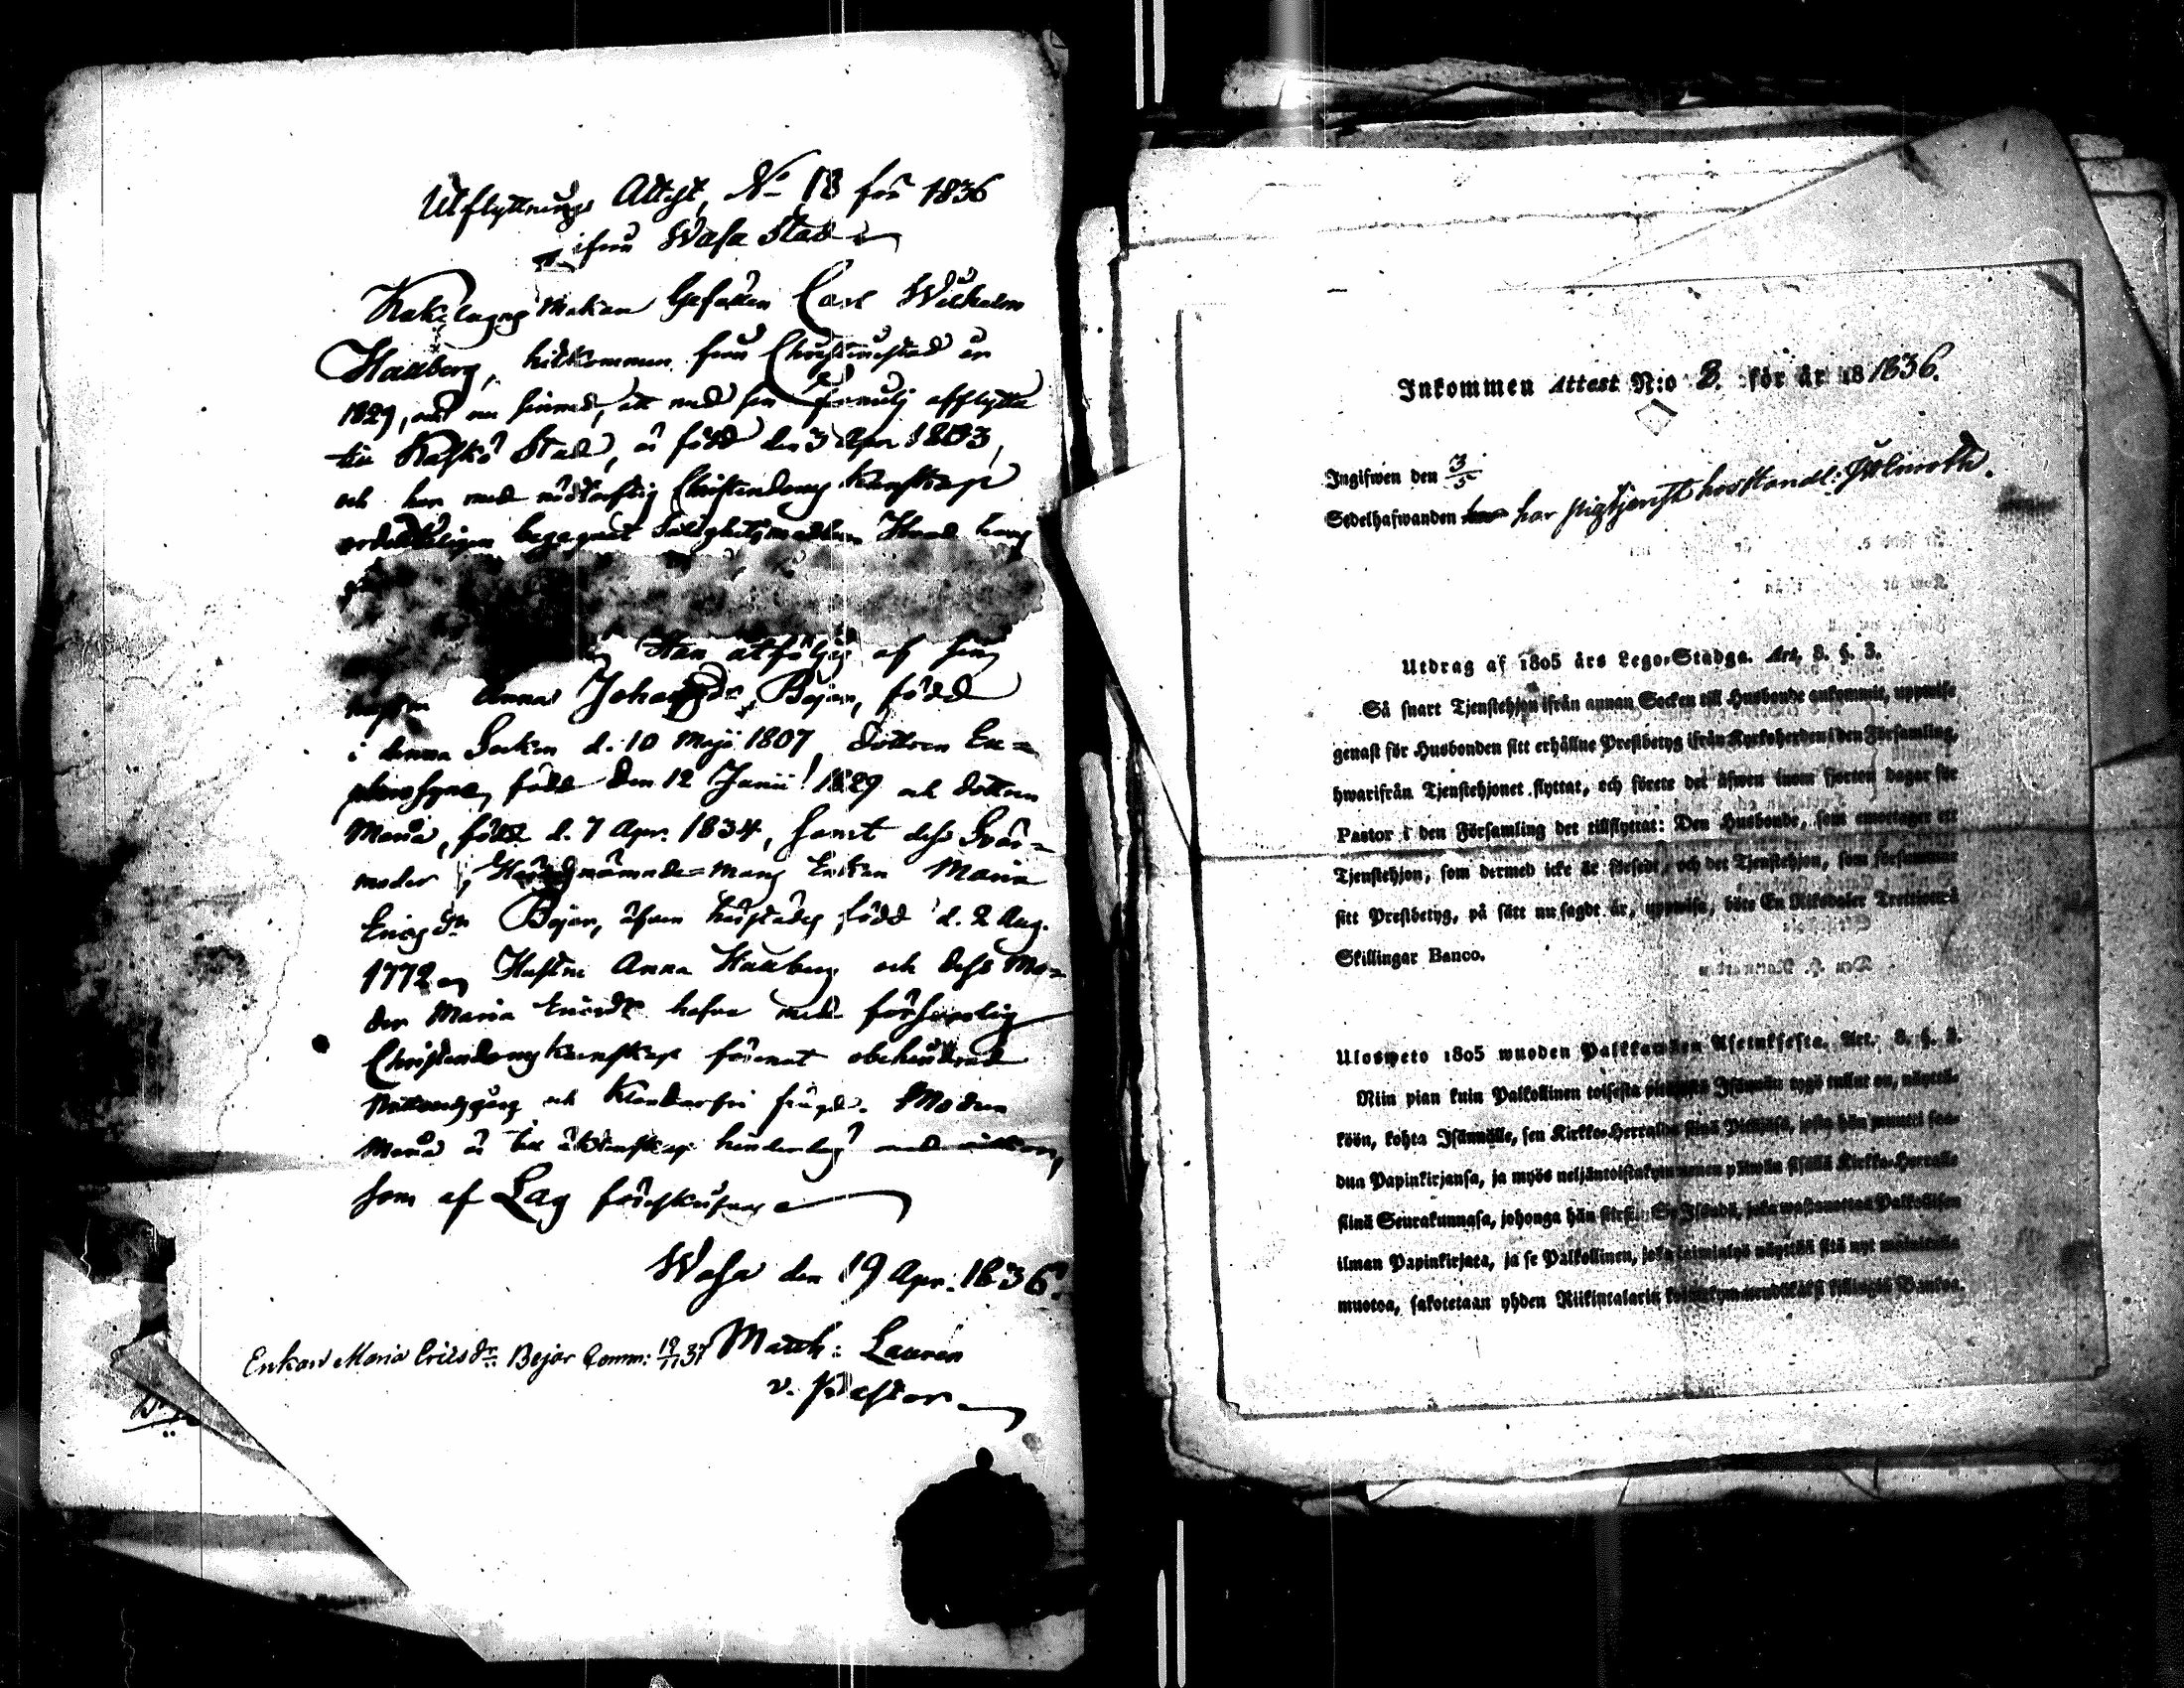 Utflyttnings Attest, No 18 för 1836
ifrån Wasa Stad
Kakelugns Makare Gesällen Carl Wilhelm
Hallberg, hitkommen från Christinestad år
1829, och nu sinnad, att med sin familj afflytta
till Kaskö Stad, är född den 3 Apr. 1803,
och har med nödtorftig Christendoms kunskap
ordentligen begagnat Salighetsmedlen. Hvad hans
Han åtföljes af sin
hustru Anna Johansdr Bejar, född
i denna Socken d. 10 Maji 1807, dottren Eu=
phrosyne, född den 12 Junii 1829 och dottren
Maria, född d. 7 Apr. 1834, samt dess Svär=
moder, Häradsnämnde=mans Enkan Maria
Ericsdr Bejar, äfven härstädes född d. 2 Aug.
1772. Hustru Anna Hallberg och dess Mo=
der Maria Ericsdr hafva med försvarlig
Christendomskunskap förenat obehindrad
Nattvardsgång och klanderfri frägd. Modren
Maria är till äktenskap hinderlös med
som af Lag
Wasa den 19 Apr. 1836.
Matth: Laurén
v. Pastor
Enkan Maria Ericsdr Bejar Comm: 19/11 37
Inkommen Attest N:o 8. för år 18 1836.
Ingifwen den 3/5
Sedelhafwanden har pigtjenst hos Handl: Holmroth.
Utdrag af 1805 års Lego-Stadga. Art. 8. §. 3.
Så snart Tjenstehjon ifrån annan Socken till Husbonde ankommit, uppwise
genast för Husbonden sitt erhållne Prestbetyg ifrån Kyrkoherden i den Församling,
hwarifrån Tjenstehjonet flyttat, och förete det äfwen inom fjorton dagar för
Pastor i den Församling det tillflyttat: Den Husbonde, som emottager ett
Tjenstehjon, som dermed icke är försedt, och det Tjenstehjon, som försummar
sitt Prestbetyg, på sätt nu sagdt är, uppwisa, böte En Riksdaler Trettiotvå
Skillingar Banco.
Ulosweto 1805 wuoden Palkkawäen Asetuksesta. Art. 8. §. 3.
Niin pian kuin Palkollinen toisesta pitäjästä Isännän tygö tullut on, näyttä-
köön, kohta Isännälle, sen Kirkko-Herralta siinä Pitäjäsä, josta hän muutti saa-
dun Papinkirjansa, ja myös neljäntoistakymmenen päiwän sisällä Kirkko-Herralle
siinä Seurakunnasa, johonga hän siirsi: Se Isändä, joka wastanottaa Palkollisen
ilman Papinkirjata, ja se Palkollinen, joka laiminlyö näyttää sitä nyt mainitulla
muotoa, sakotetaan yhden Riikintalarin